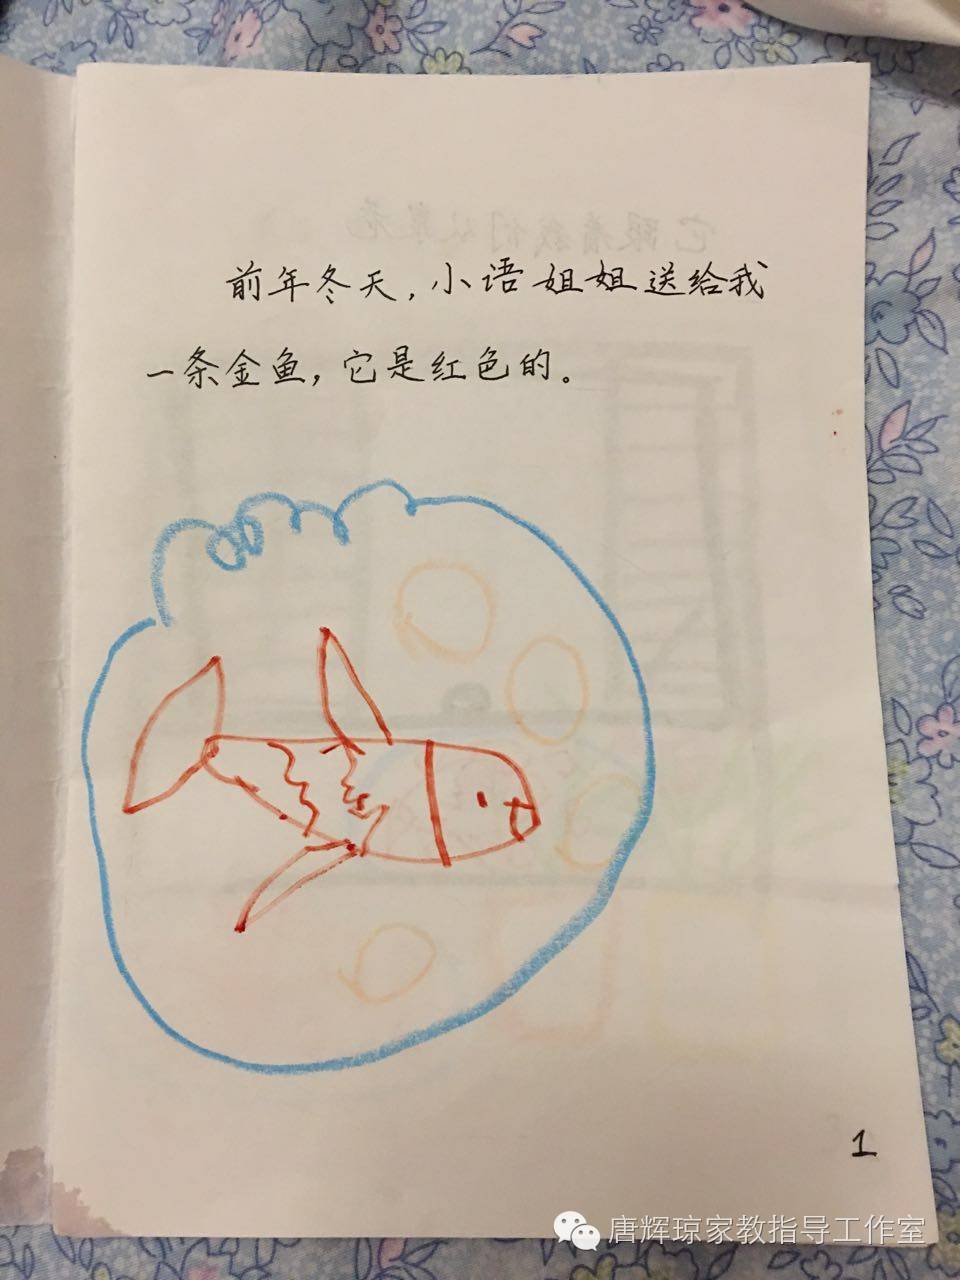 前年冬天，小语姐姐送给我
一条金鱼，它是红色的。
1
唐辉琼家教指导工作室